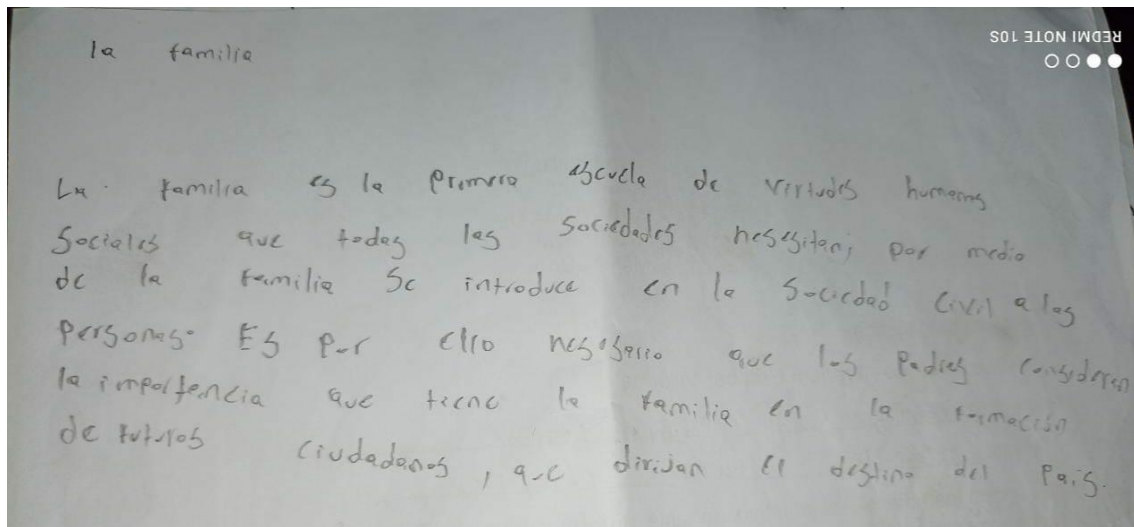 la familia
REDMI NOTE 10S
La familia es la primera escuela de virtudes humanas
Sociales que todas las Sociedades nesesitan; por medio
de la familia se introduce en la Sociedad civil a las
personas. Es por ello nesesario que los padres consideren
la importancia que tiene la familia en la formación
de futuros ciudadanos, que dirijan el destino del País.